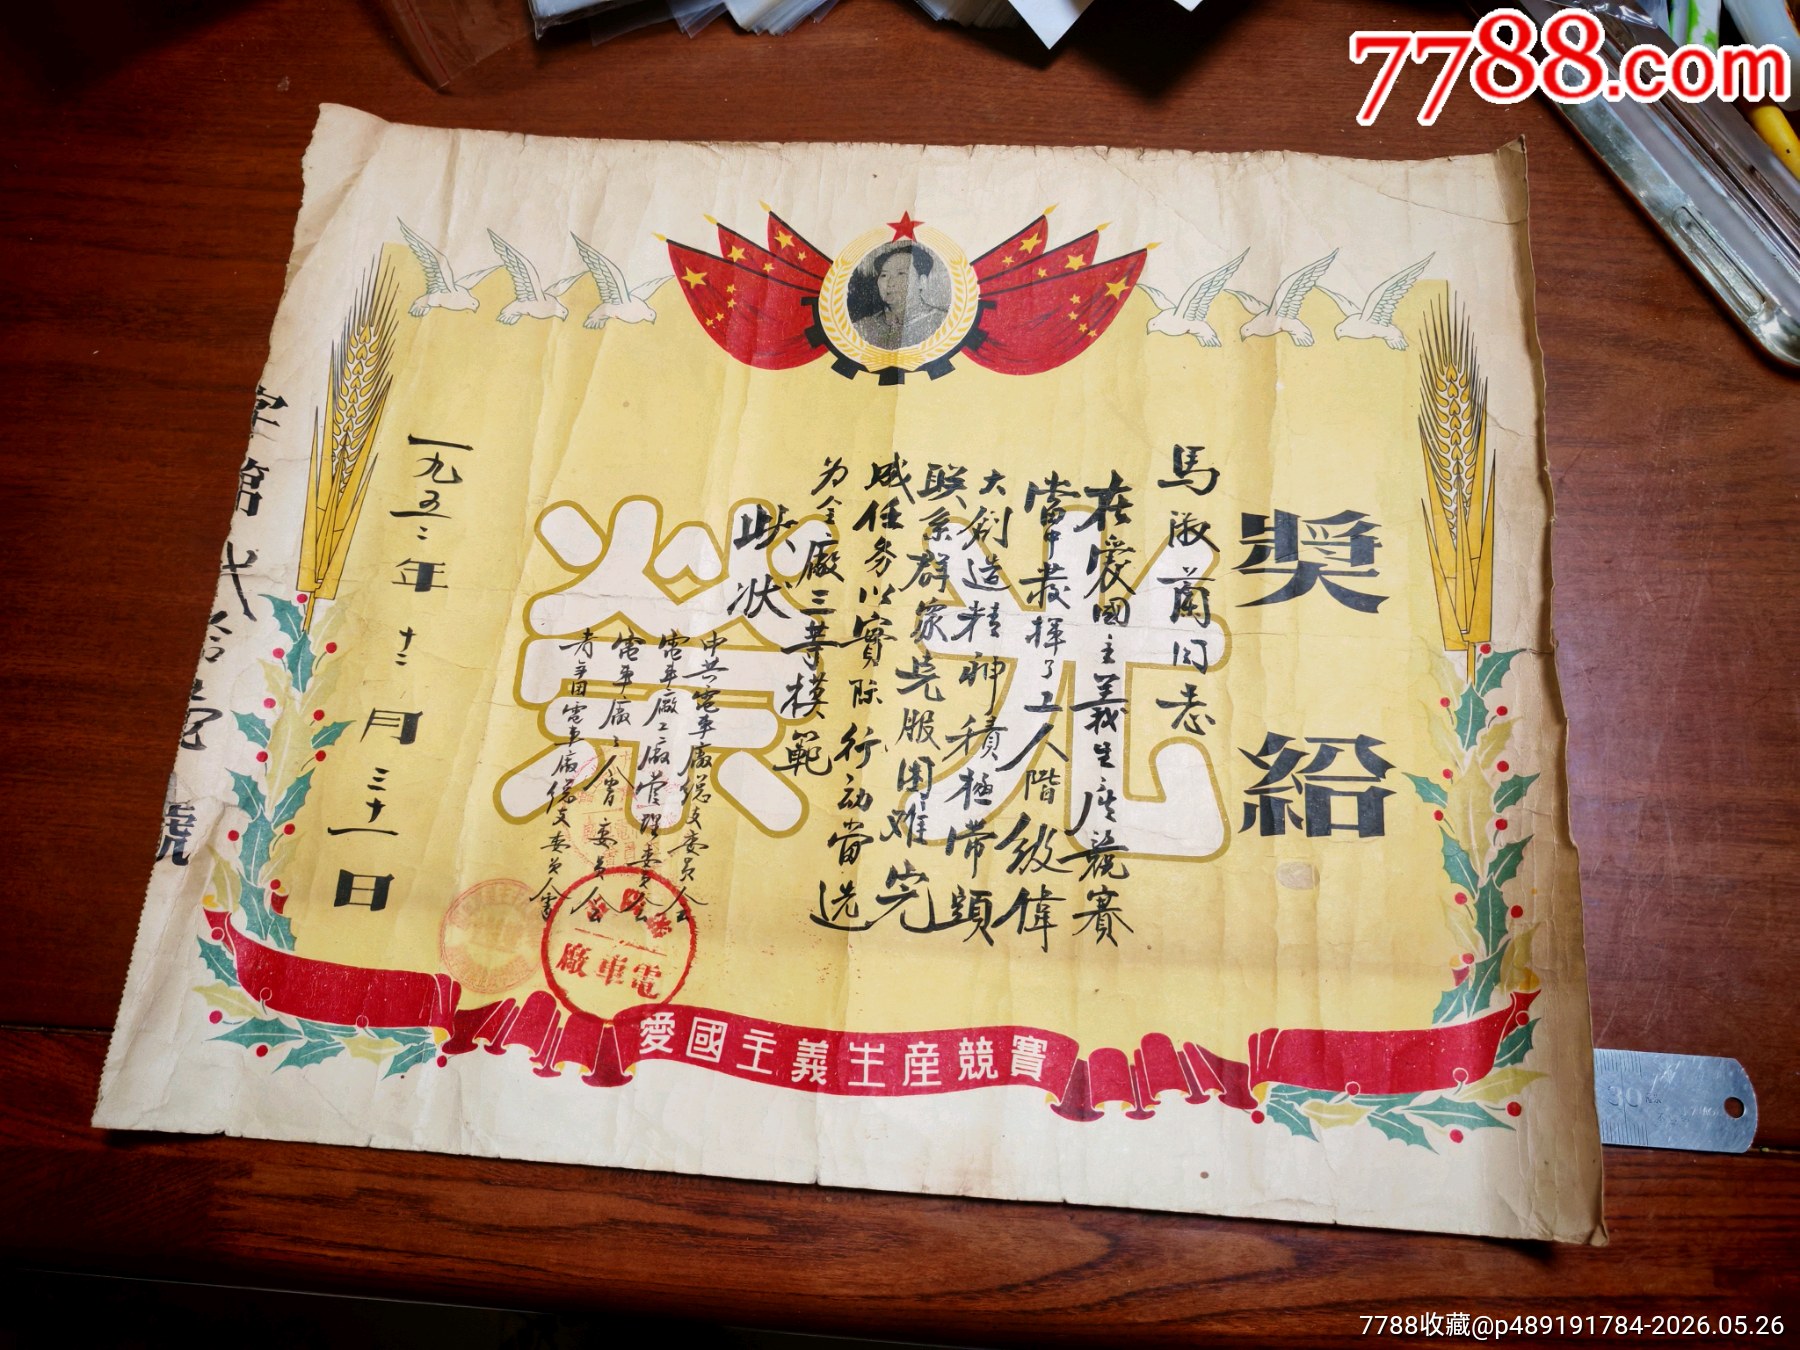 7788.com
獎給
馬淑蘭同志
在愛國主義生産競賽
當中發揮了工人階級偉
大創造精神積極帶頭
联系群众克服困难完
成任务以實际行动當选
为全廠三等模範
此状
中共電車廠总支委員会
電車廠工廠管理委員会
電車廠工人會委員会
青年団電車廠总支委員会
一九五二年十二月三十一日
字第弍拾壱號
光榮
電車廠
愛國主義生産競賽
30
7788收藏@p489191784-2026.05.26